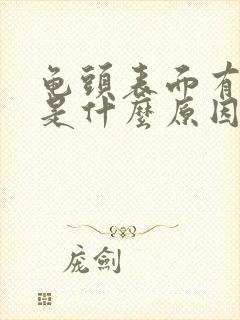 龟頭表面有
是什麼原因
庞劍